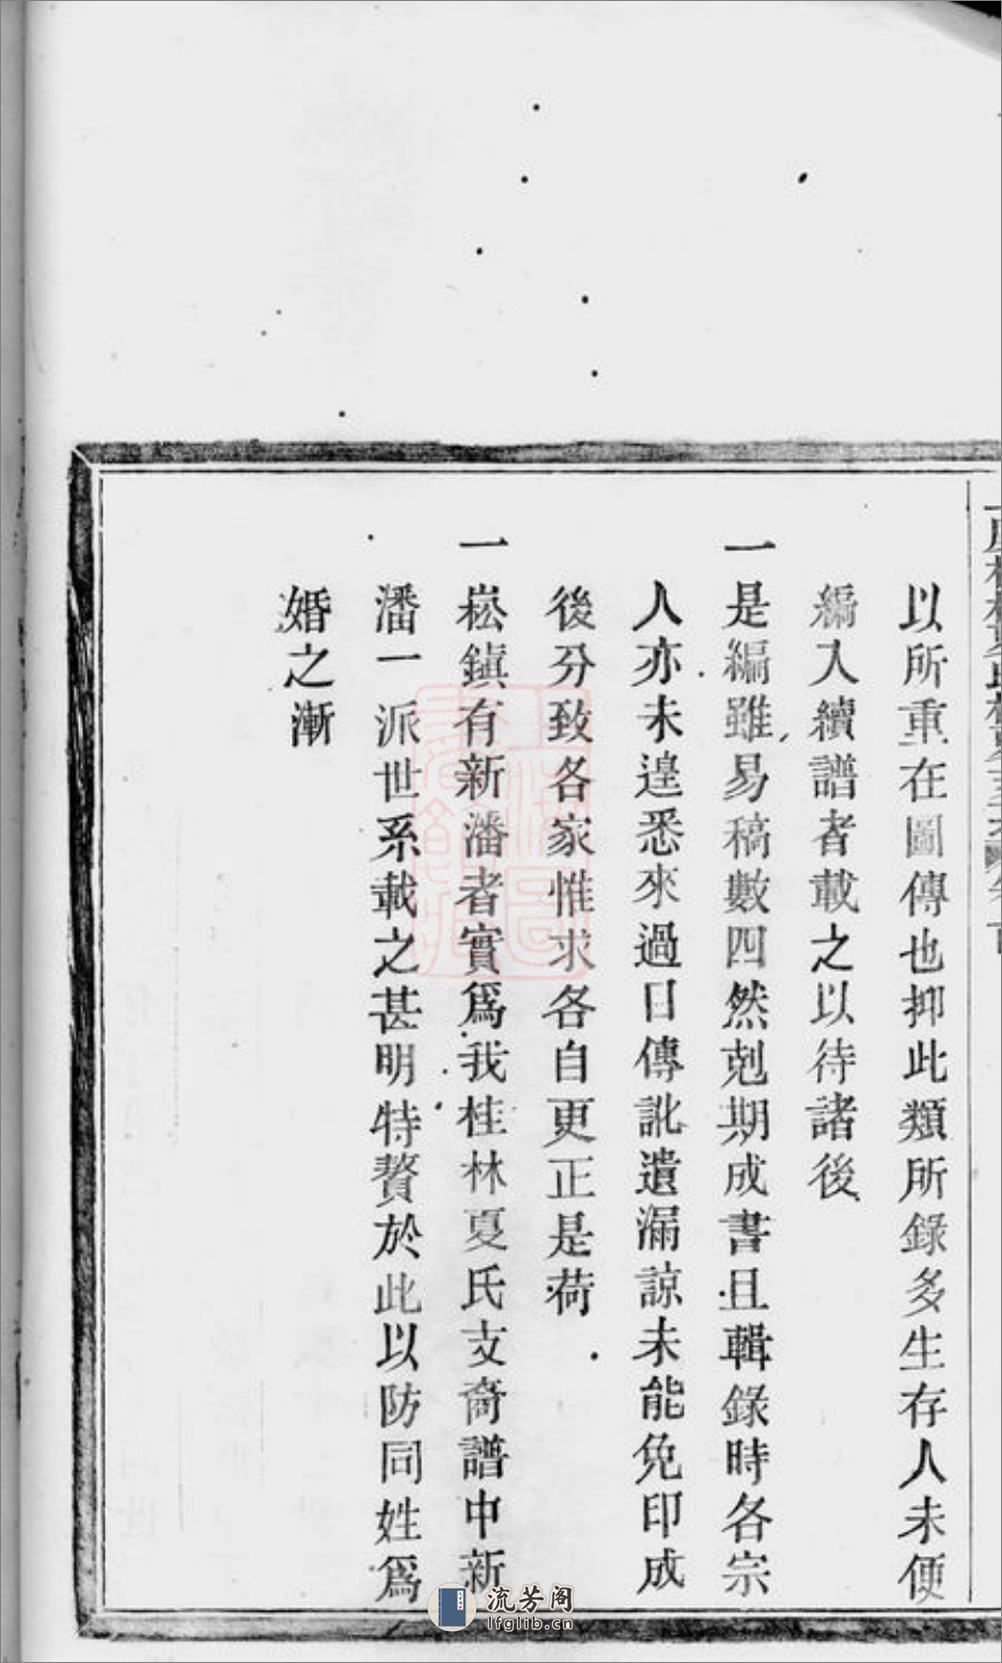 以所重在圖傳也抑此類所錄多生存人未便
編入續譜者載之以待諸後
一是編雖易稿數四然剋期成書且輯錄時各宗
人亦未遑悉來過日傳訛遺漏諒未能免印成
後分致各家惟求各自更正是荷
一崧鎮有新潘者實爲我桂林夏氏支裔譜中新
潘一派世系載之甚明特贅於此以防同姓爲
婚之漸
流芳阁
lfglib.cn